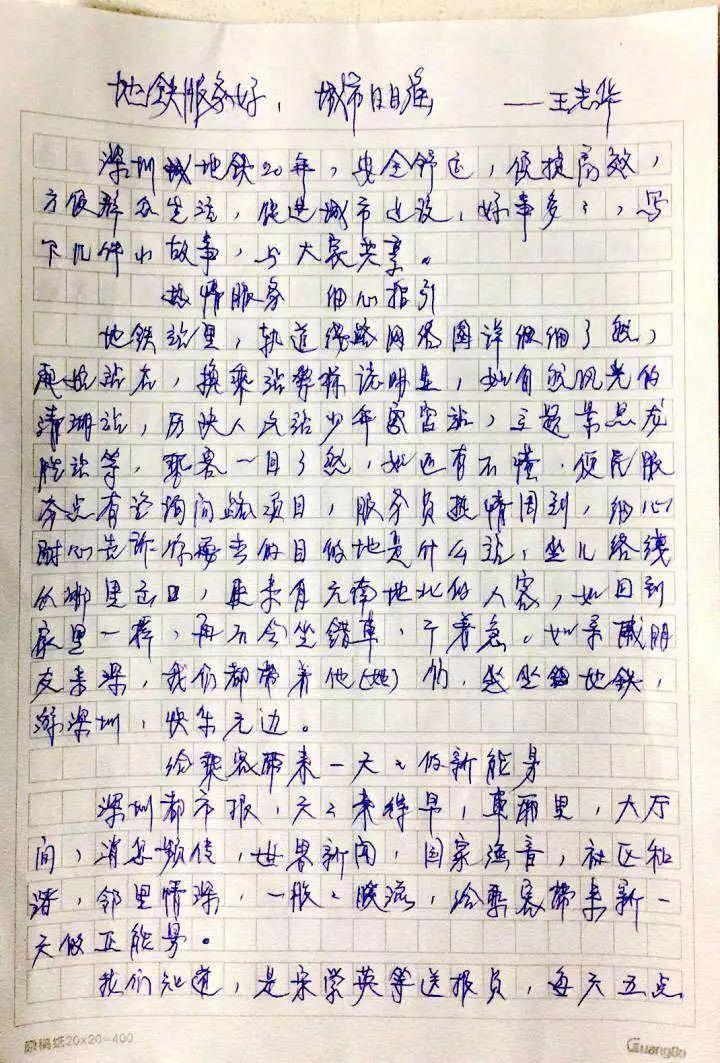 地铁服务好，城市日日强 ——王光华
深圳地铁20年，安全舒适，便捷高效，
方便群众生活，促进城市建设，好事多多，写
下几件小故事，与大家共享。
热情服务 细心指引
地铁站里，轨道线路网络图详细了然，
站名，换乘站等标说明显，如有风光的
清湖站，历史人文站少年宫站，主题景点龙
胜站等，乘客一目了然，如还有不懂，便民服
务点有咨询问路项目，服务员热情周到，细心
耐心告诉你要去的目的地是什么站，坐几络线
从哪里进口，更来有天南地北的人客，如回到
家里一样，再不会坐错车，干着急。如亲戚朋
友来深，我们都带着他(她)们，坐地铁，
游深圳，快乐无边。
给乘客带来一天天的新能量
深圳都市报，天天来得早，车厢里，大厅
间，消息频传，世界新闻，国家强音，社区和
谐，邻里情深，一股股暖流，给乘客带来新一
天的正能量。
我们知道，是宋学英等送报员，每天五点
原稿纸20×20=400
GuangBo